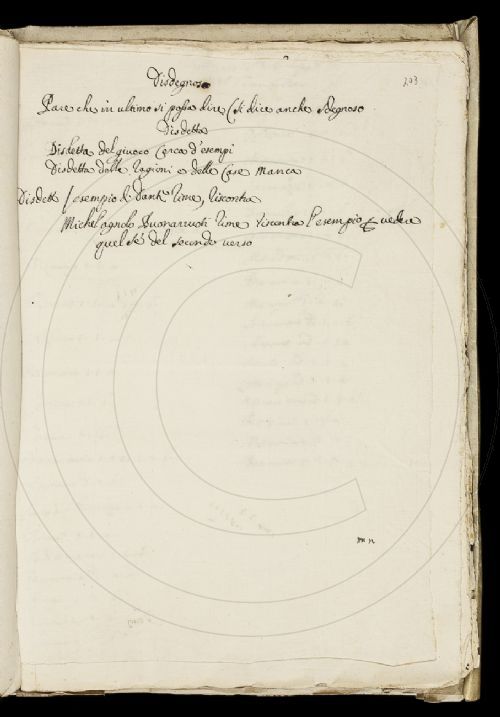 203
Disdegnoso
Pare che in ultimo si possa dire si dice anche sdegnoso
Disdetta
Disdetta del giuoco Cerca d'esempi
Disdetta delle Ragioni e delle Cose manca
Disdett l'esempio di Rime, Riscontra
Michel agnolo Buonarruoti Rime Riscontra l'esempio e veda
quel se del secondo verso
m n